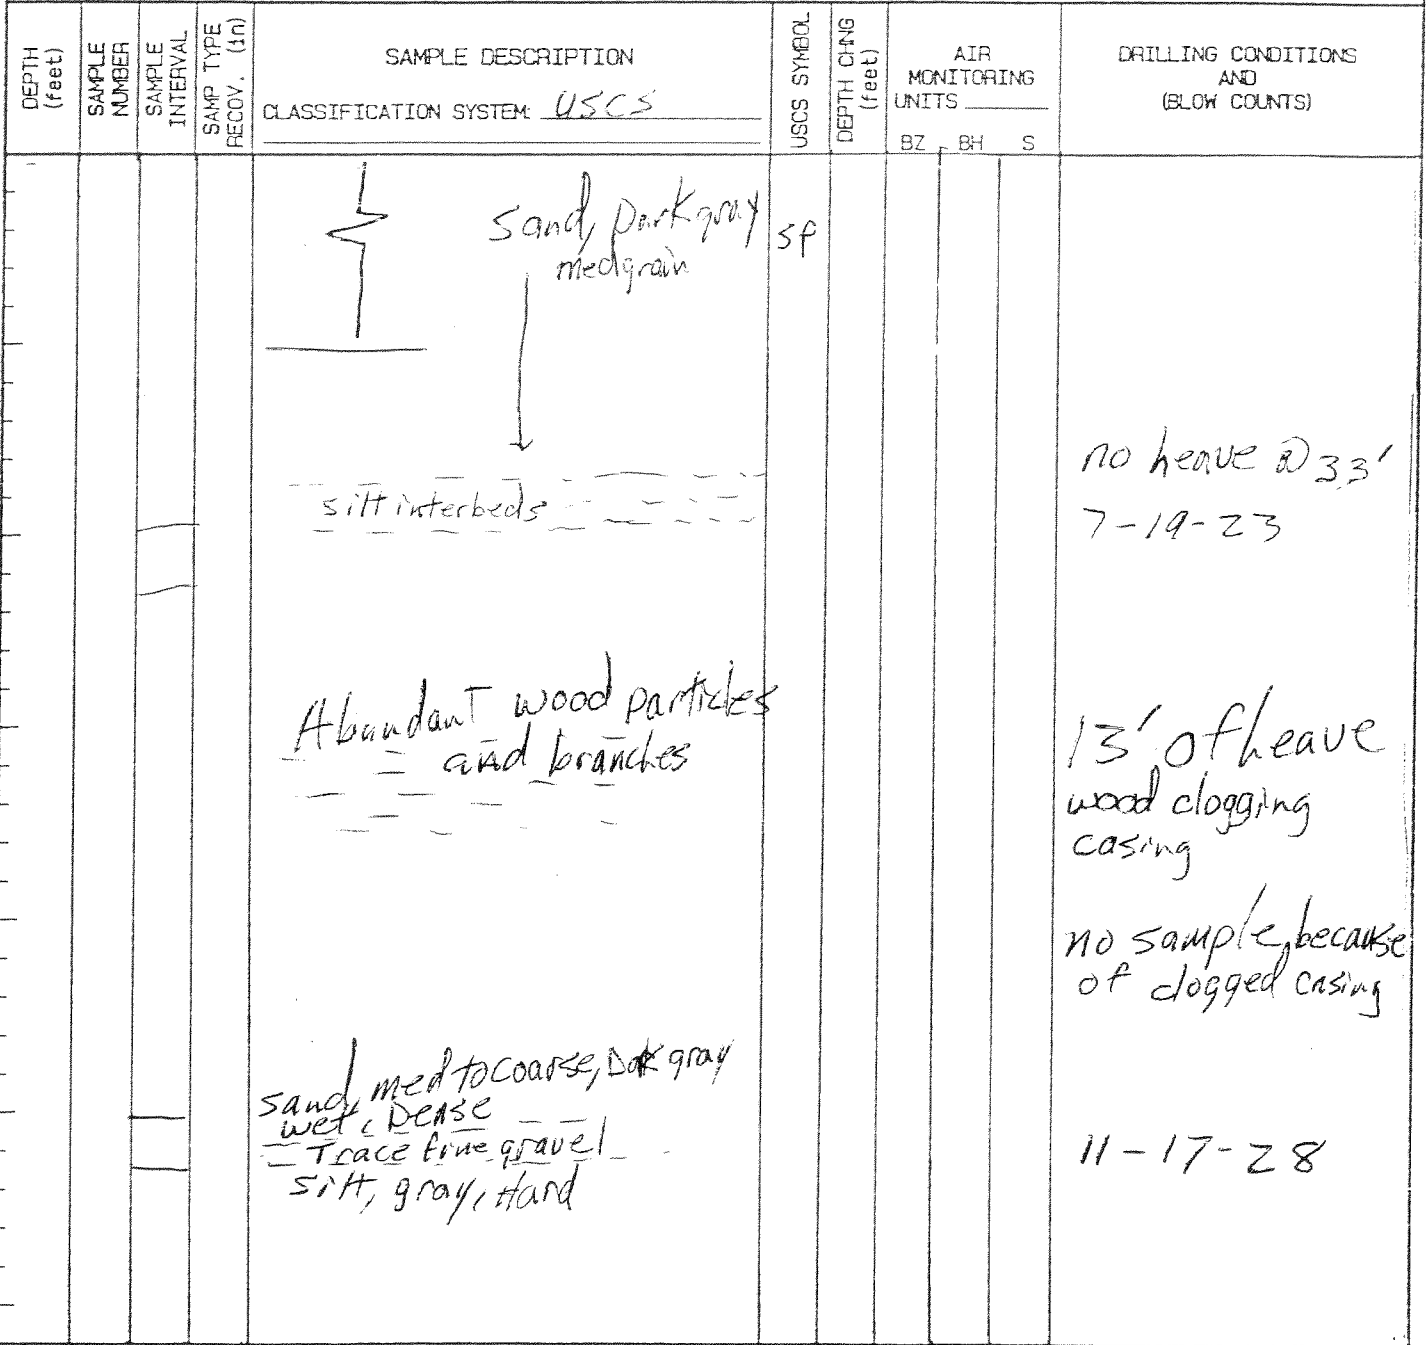 DEPTH
(feet)
SAMPLE
NUMBER
SAMPLE
INTERVAL
SAMP TYPE
RECOV. (in)
SAMPLE DESCRIPTION
CLASSIFICATION SYSTEM: USCS
USCS SYMBOL
DEPTH CHNG
(feet)
AIR
MONITORING
UNITS
BZ BH S
DRILLING CONDITIONS
AND
(BLOW COUNTS)
Sand, Dark gray
med grain
SP
no heave @ 33'
silt interbeds
7-19-23
Abundant wood particles
and branches
13' of heave
wood clogging
casing
no sample, because
of clogged casing
sand, med to coarse, Dak gray
wet, Dense
Trace fine gravel
silt, gray, Hard
11-17-28